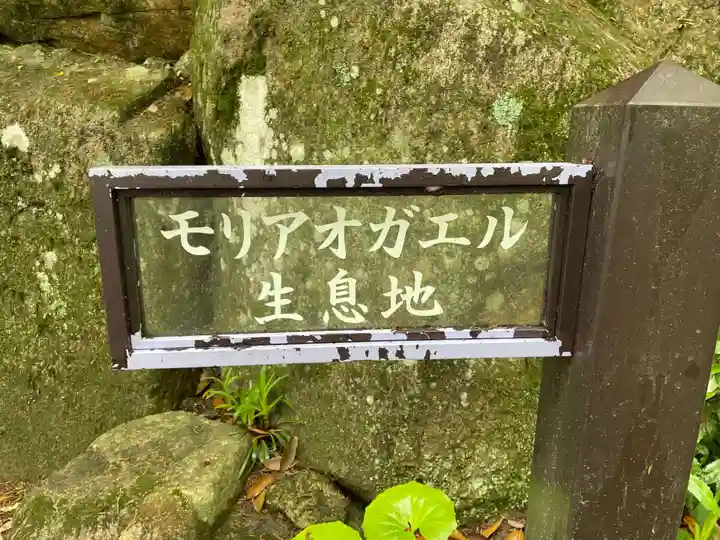 モリアオガエル
生息地